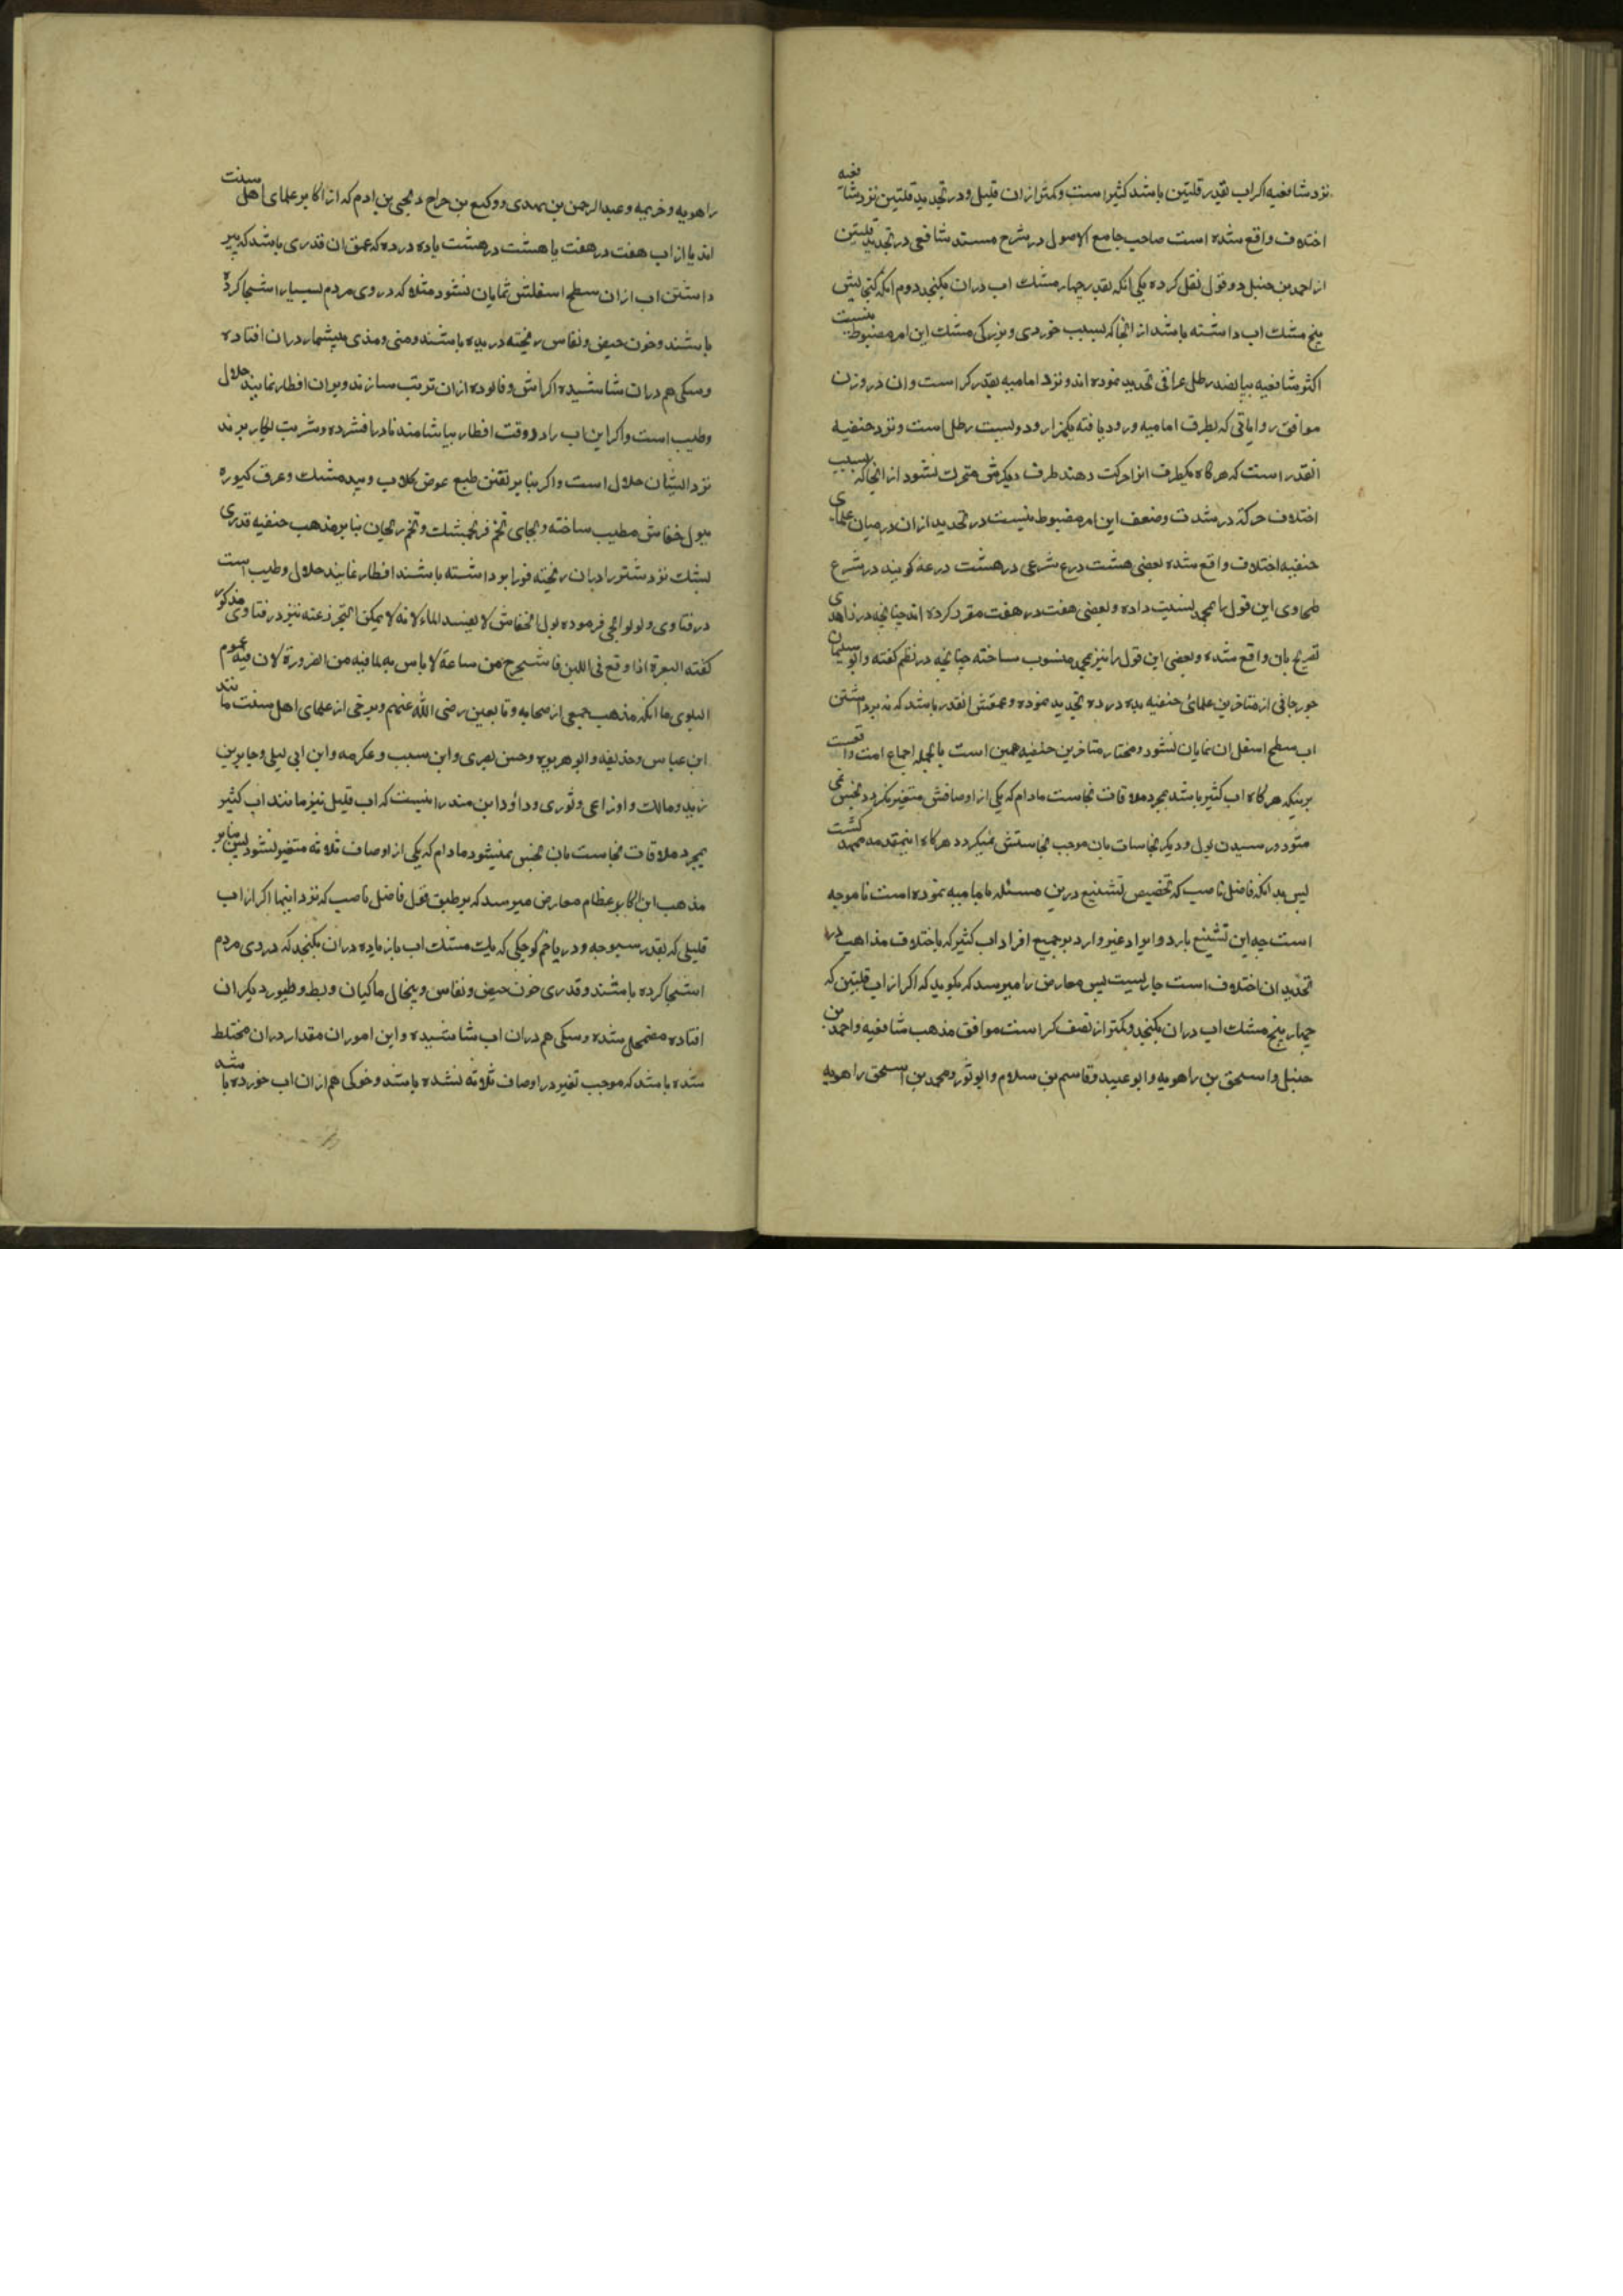 نزد شافعیه اکر اب بقدر قلتین باشد کثیر است و کمتر ازان قلیل و در تحدید قلتین نزد شافعیه
اختلاف واقع شده است صاحب جامع الاصول در شرح مسند شافعی در تحدید قلتین
از احمد بن حنبل دو قول نقل کرده یکی انکه بقدر چهار مشک اب دران بکنجد دوم انکه کنجایش
پنج مشک اب داشته باشد از انجا که بسبب خوردی و بزرکی مشک این امر مضبوط نیست
اکثر شافعیه بپانصد رطل عراقی تحدید نموده اند و نزد امامیه بقدر کر است وان در وزن
موافق روایاتی که بطرف امامیه ورود یافته یکهزار و دویست رطل است و نزد حنفیه
انقدر است که هرکاه یکطرف انرا حرکت دهند طرف دیکرش متحرک نشود از انجا که بسبب
اختلاف حرکة در شدت وضعف این امر مضبوط نیست در تحدید ازان در میان علمای
حنفیه اختلاف واقع شده بعضی هشت درع شرعی در هشت درعه کویند در شرع
طحاوی این قول را بمحمد نسبت داده و بعضی هفت در هفت مقرر کرده اند چنانچه در زاهدی
تصریح بان واقع شده و بعضی این قول را نیز بمحمد منسوب ساخته چنانچه در نظم کفته و ابو سلیمان
جورجانی از متاخرین علمائ حنفیه بده در ده تحدید نموده و عمقش انقدر باشد که نه برداشتن
اب سطح اسفل ان نمایان نشود و مختار متاخرین حنفیه همین است بالجمله اجماع امت واقعست
برینکه هرکاه اب کثیر باشد بمجرد ملاقات نجاست مادام که یکی از اوصافش متغیر نکردد نجس نمی
شود و رسیدن بول و دیکر نجاسات بان موجب نجاستش نمیکردد هرکاه اینمقدمه ممهد کشت
پس بدانکه فاضل ناصب که تخصیص تشنیع درین مسئله بامامیه نموده است ناموجه
است چه این تشنیع بارد و ایراد غیر وارد بر جمیع افراد اب کثیر که باختلاف مذاهب در
تحدید ان اختلاف است جاریست پس معارض را میرسد که بکوید که اکر از اب قلتین که
چهار پنج مشک اب دران بکنجد و کمتر از نصف کر است موافق مذهب شافعیه و احمد بن
حنبل و اسحق بن راهویه و ابو عبید و قاسم بن سلام و ابو ثور و محمد بن اسحق راهویه
راهویه و خزیمه و عبدالرحمن بن مهدی و وکیع بن جراح و یحیی بن ادم که از اکابر علمای اهل سنت
اند یا از اب هفت در هفت یا هشت در هشت یا ده در ده که عمق ان قدری باشد که ببر
داشتن اب ازان سطح اسفلش نمایان نشود مثلا که در وی مردم بسیار استنجا کرده
باشند و خون حیض و نفاس ریخته دریده باشند و منی و مذی بیشمار دران افتاده
وسکی هم دران شاشیده اکر اش و فالوده ازان ترتیب سازند و بران افطار نمایند حلال
وطیب است و اکر این اب را در وقت افطار بیاشامند نادر افشرده و شربت بکار برند
نزد ایشان حلال است و اکر بنا بر تفنن طبع عوض کلاب و بید مشک و عرق کیوره
ببول خفاش مطیب ساخته و بجای تخم فرنجمشک و تخم ریحان بنا بر مذهب حنفیه قدری
پشک نزد شتر را دران ریخته فورا بر داشته باشند افطار نمایند حلال و طیب است
در فتاوی ولوالجی فرموده بول الخفاش لا یفسد الماء لانه لا یمکن التحرز عنه نیز در فتاوی مذکور
کفته البعرة اذا وقع فی اللبن فاستخرج من ساعة لا باس به لما فیه من الضرورة لان فیه عموم
البلوی با انکه مذهب جمعی از صحابه و تابعین رضی الله عنهم و برخی از علمای اهل سنت مانند
ابن عباس و حذیفه و ابو هریره و حسن بصری و ابن مسیب و عکرمه و ابن ابی لیلی و جابر بن
زید و مالک و اوزاعی و ثوری و داؤد و ابن منذر انیست که اب قلیل نیز مانند اب کثیر
بمجرد ملاقات نجاست بان نجس نمیشود مادام که یکی از اوصاف ثلاثه متغیر نشود پس بنا بر
مذهب این اکابر عظام معارض میرسد که بر طبق قول فاضل ناصب که نزد اینها اکر از اب
قلیلی که بقدر سبوچه و در یا خم کوچکی که یک مشک اب یا زیاده دران بکنجد که در وی مردم
استنجا کرده باشند و قدری خون حیض و نفاس و پنجال ماکیان و بط و طیور دیکر ان
افتاده مضمحل شده وسکی هم دران اب شاشیده و این امور ان مقدار دران مختلط
شده باشد که موجب تغیر در اوصاف ثلاثه نشده باشد و خوکی هم ازان اب خورده باشد